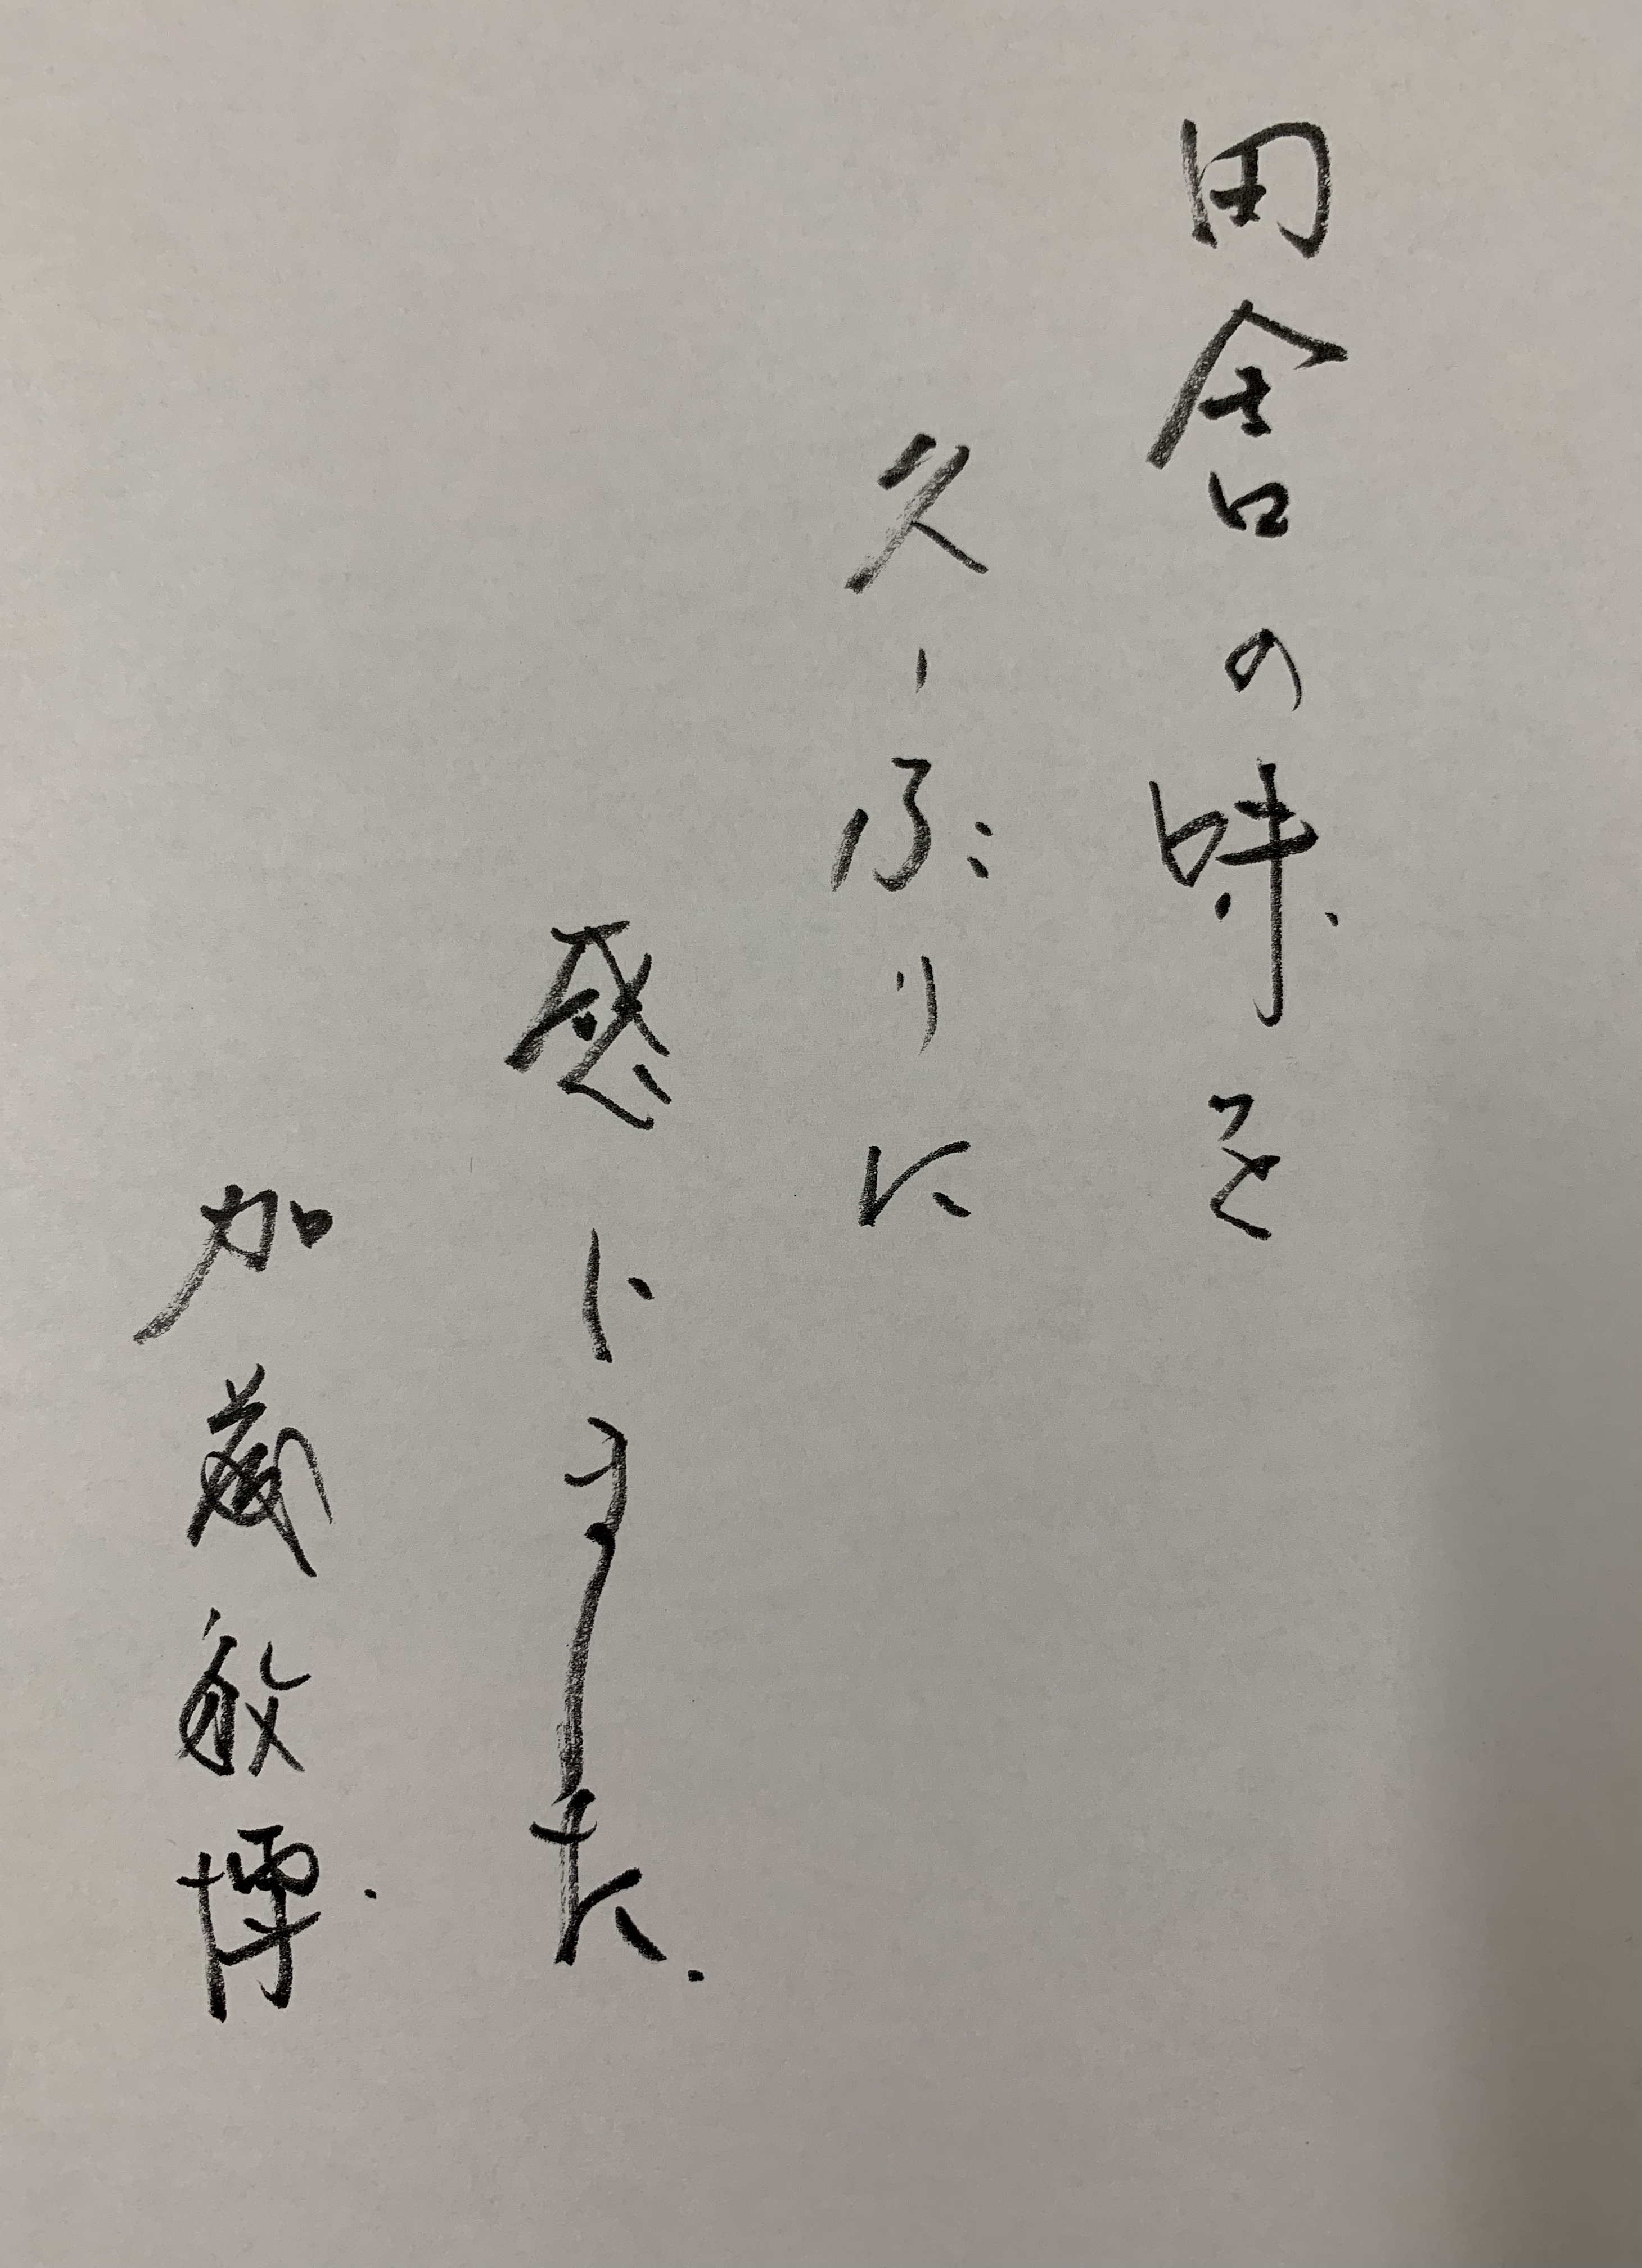 田舎の味を
久しぶりに
感じました.
加藤敏博.